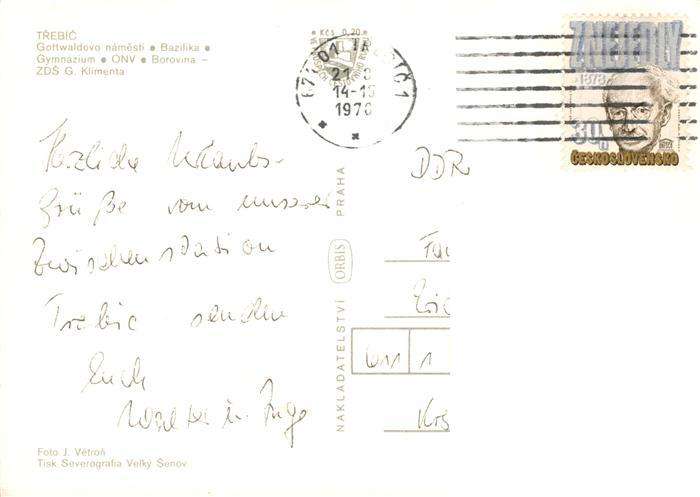 TŘEBÍČ
Gottwaldovo náměstí ● Bazilika ●
Gymnazium ● ONV ● Borovina –
ZDŠ G. Klimenta
Kčs 0,20
TŘEBÍČ 1
14-15
1978
ZNEJEDLÝ
1878
ČESKOSLOVENSKO
Herzliche Urlaubs-
Grüße von unserer
Zwischenstation
Trebic senden
Euch
Walter u. Inge
DDR
Fam
611 1
NAKLADATELSTVÍ ORBIS PRAHA
Foto J. Větroň
Tisk Severografia Velký Šenov